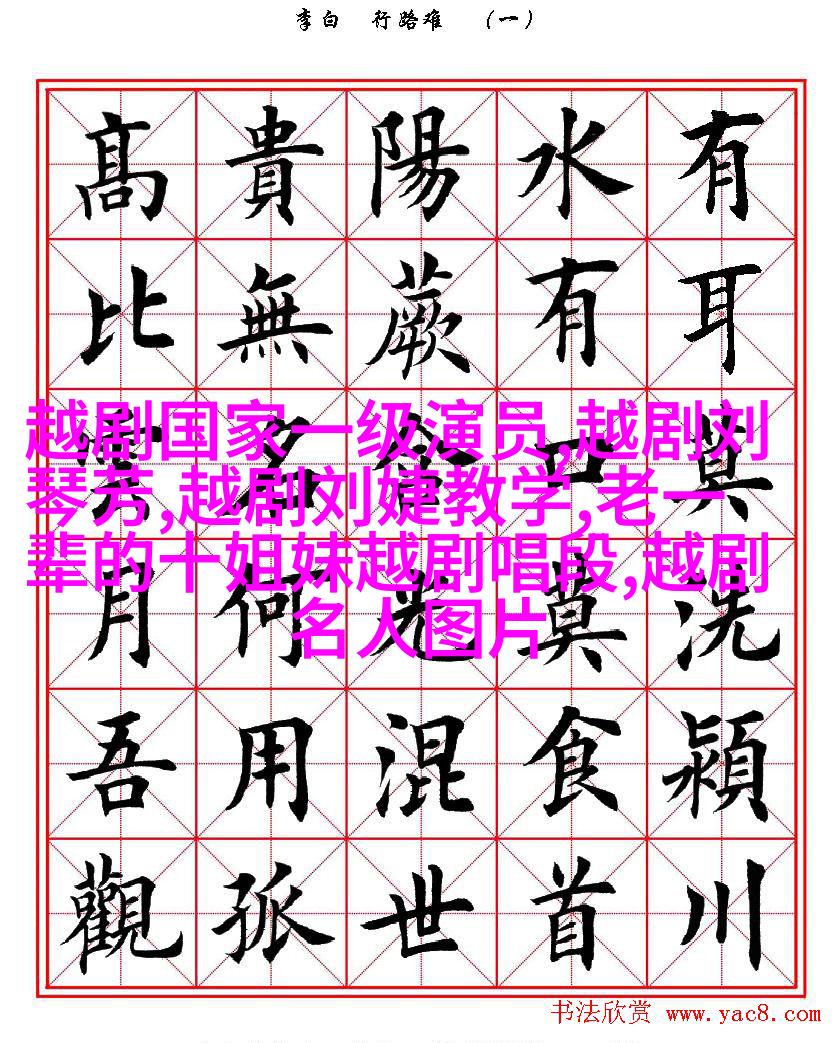 李白 行路难 （一）
有耳莫洗潁川
水有口莫食首
陽蕨含光混世
貴無名何用孤
高比雲月吾觀
越剧国家一级演员,越剧刘
琴芳,越剧刘婕教学,老一
辈的十姐妹越剧唱段,越剧
名人图片
书法欣赏 www.yac8.com